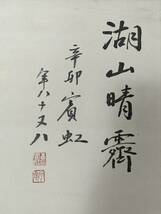 湖山晴霽
辛卯賓虹
年八十又八